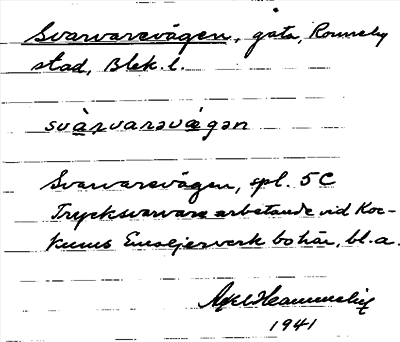 Svarvarevägen, gata, Ronneby
stad, Blek. l.
svàrvarəvä́gən
Svarvarevägen, spl. 5C
Trycksvarvare arbetande vid Koc-
kums Emaljerverk bo här, bl.a.
Axel Hammelin
1941